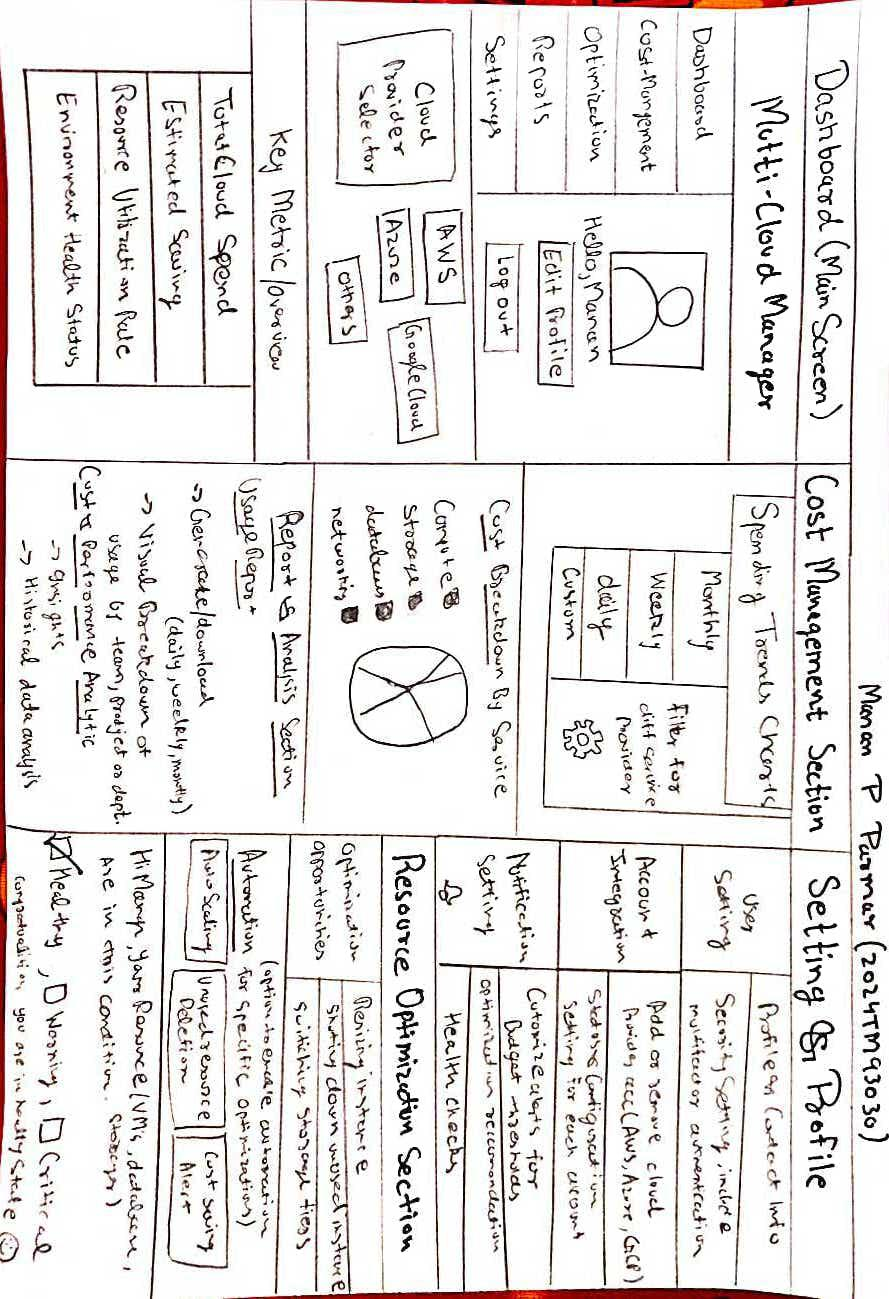 Manan P Parmar (2024TM93030)
Dashboard (Main Screen)
Mutti-Cloud Manager
Dashboard
Cost-Mangement
Optimization
Reports
Settings
Hello, Manan
Edit Profile
Log out
Cloud
Provider
Selector
AWS
Azure
Google Cloud
others
Key Metric/overview
Total Cloud Spend
Estimated Saving
Resource Utilization Rate
Environment Health Status
Cost Management Section
Spending Trends Charts
Monthly
Weekly
daily
Custom
Filter for
diff service
Provider
Cost Breakdown By Service
Compute
Storage
databases
networking
Report & Analysis Section
Usage Report
→ Generate/download
(daily, weekly, montly)
→ Visual Breakdown of
usage by team, project or dept.
Cost & Performance Analytic
→ Insights
→ Historical data analysis
Setting & Profile
User
Setting
Profile on Contact Info
Security Setting, include
multifactor authentication
Account
Integration
Add or remove cloud
Provider acc (AWS, Azure, GCP)
Setting for each account
Notification
Setting
Cutomize alerts for
Budget thresholds
optimization recommendation
Health checks
Resource Optimization Section
Optimization
opportunities
Resizing instance
Shuting down unused instance
Switching Storage tiers
Automation (option to enable automation
for Specific Optimizations)
Auto Scaling
Unused resource
Deletion
Cost Saving
Alert
Hi Manan, your Resource (VM's, database,
are in this condition. Storage)
☑ Healthy, □ Warning, □ Critical
Congratulation, you are in healty State